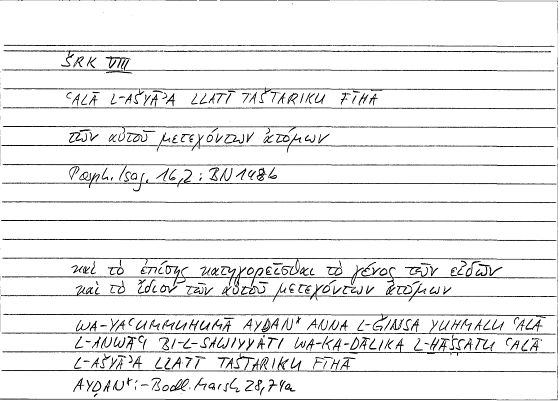 ŠRK VIII
ʿALĀ L-AŠYĀʾA LLATĪ TAŠTARIKU FĪHĀ
τῶν αὐτοῦ μετεχόντων ἀτόμων
Porph. Isag. 16,2: BN 148b
καὶ τὸ ἐπίσης κατηγορεῖσθαι τὸ γένος τῶν εἰδῶν
καὶ τὸ ἴδιον τῶν αὐτοῦ μετεχόντων ἀτόμων
WA-YAʿUMMUHUMĀ AYḌAN* ANNA L-ĞINSA YUḤMALU ʿALĀ
L-ANWĀʿI BI-L-SAWIYYATI WA-KA-ḎĀLIKA L-ḪĀṢṢATU ʿALĀ
L-AŠYĀʾA LLATĪ TAŠTARIKU FĪHĀ
AYḌAN*:-Bodl. Marsh 28,74a